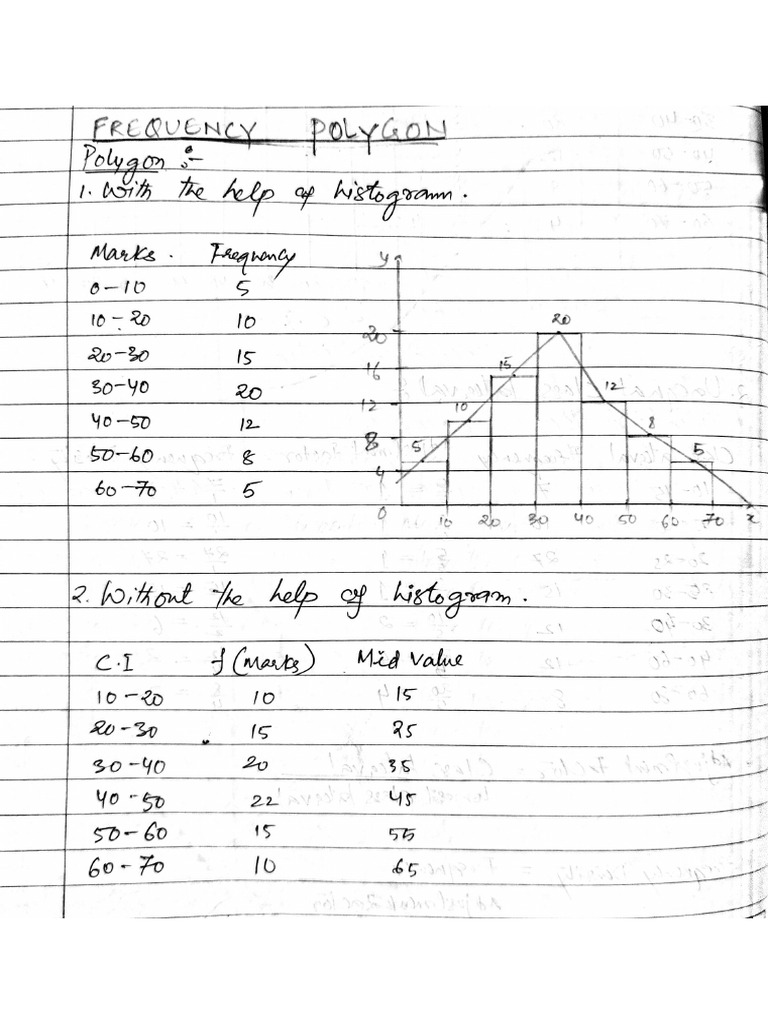 FREQUENCY POLYGON
Polygon :-
1. With the help of histogram.
Marks. Frequency
0-10 5
10-20 10
20-30 15
30-40 20
40-50 12
50-60 8
60-70 5
y
20
16
12
8
4
0 10 20 30 40 50 60 70 x
5 10 15 20 12 8 5
2. Without the help of histogram.
C.I f (marks) Mid value
10-20 10 15
20-30 15 25
30-40 20 35
40-50 22 45
50-60 15 55
60-70 10 65